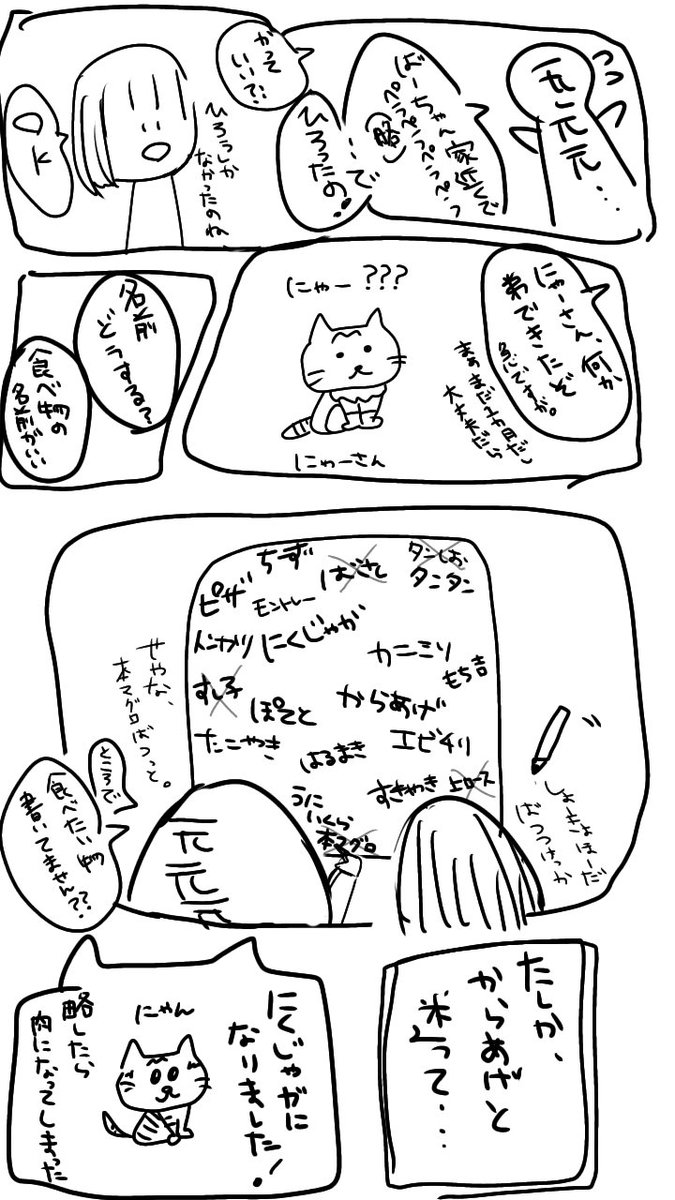 元元元…
ばーちゃん家近くで
ペラペンペンペンペっ
(略)
…で
ひろったの!
かって
いい?
ひろうしか
なかったのね
OK
にゃーさん、何か
弟できたぞ
急ですが。
まぁまだ2カ月だし
大丈夫だら
にゃー???
にゅーさん
名前
どうする?
食べ物の
名前がいい
タンしお
タンタン
ちーず
ばされ
ピザ
モントレー
にくじゃが
カニミソ
もち吉
すし子
ぽてと
からあげ
たこやき
はるまき
エビチリ
すきやき
上ロース
うに
いくら
本マグロ
しょーきょほーだ
ばつつけっか
せやな、
本マグロばつっと。
ところで
食べたい物
書いてません??
元元元
たしか、
からあげと
迷って…
にくじゃがに
なりました!
にゃん
略したら
肉になってしまった